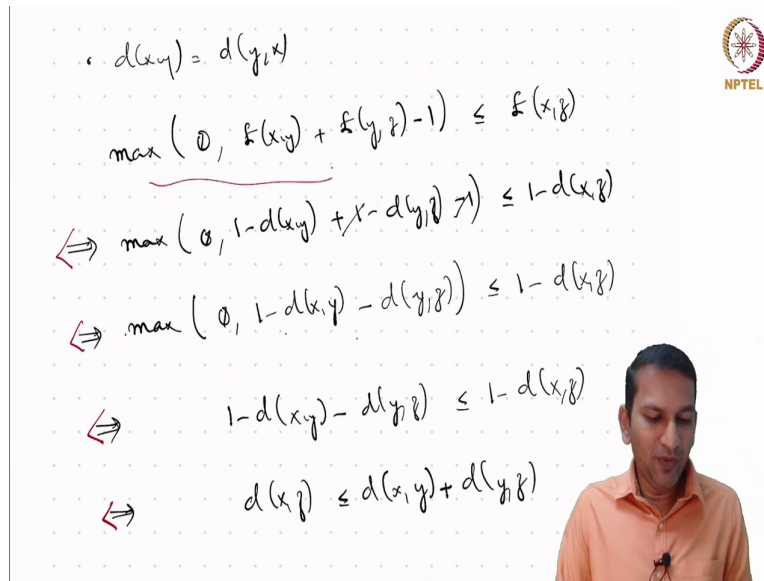 • d(x,y) = d(y,x)
NPTEL
max ( 0, E(x,y) + E(y,z) - 1) ≤ E(x,z)
⇔ max ( 0, 1 - d(x,y) + 1 - d(y,z) - 1) ≤ 1 - d(x,z)
⇔ max ( 0, 1 - d(x,y) - d(y,z)) ≤ 1 - d(x,z)
⇔ 1 - d(x,y) - d(y,z) ≤ 1 - d(x,z)
⇔ d(x,z) ≤ d(x,y) + d(y,z)